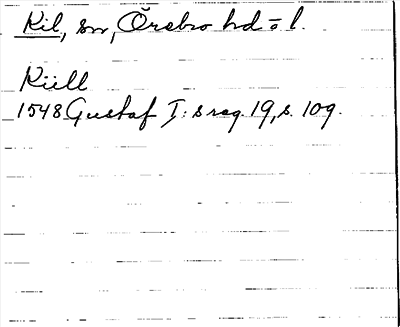 Kil, sn, Örebro hd o l.
Kiill
1548 Gustaf I: s reg. 19, s. 109.